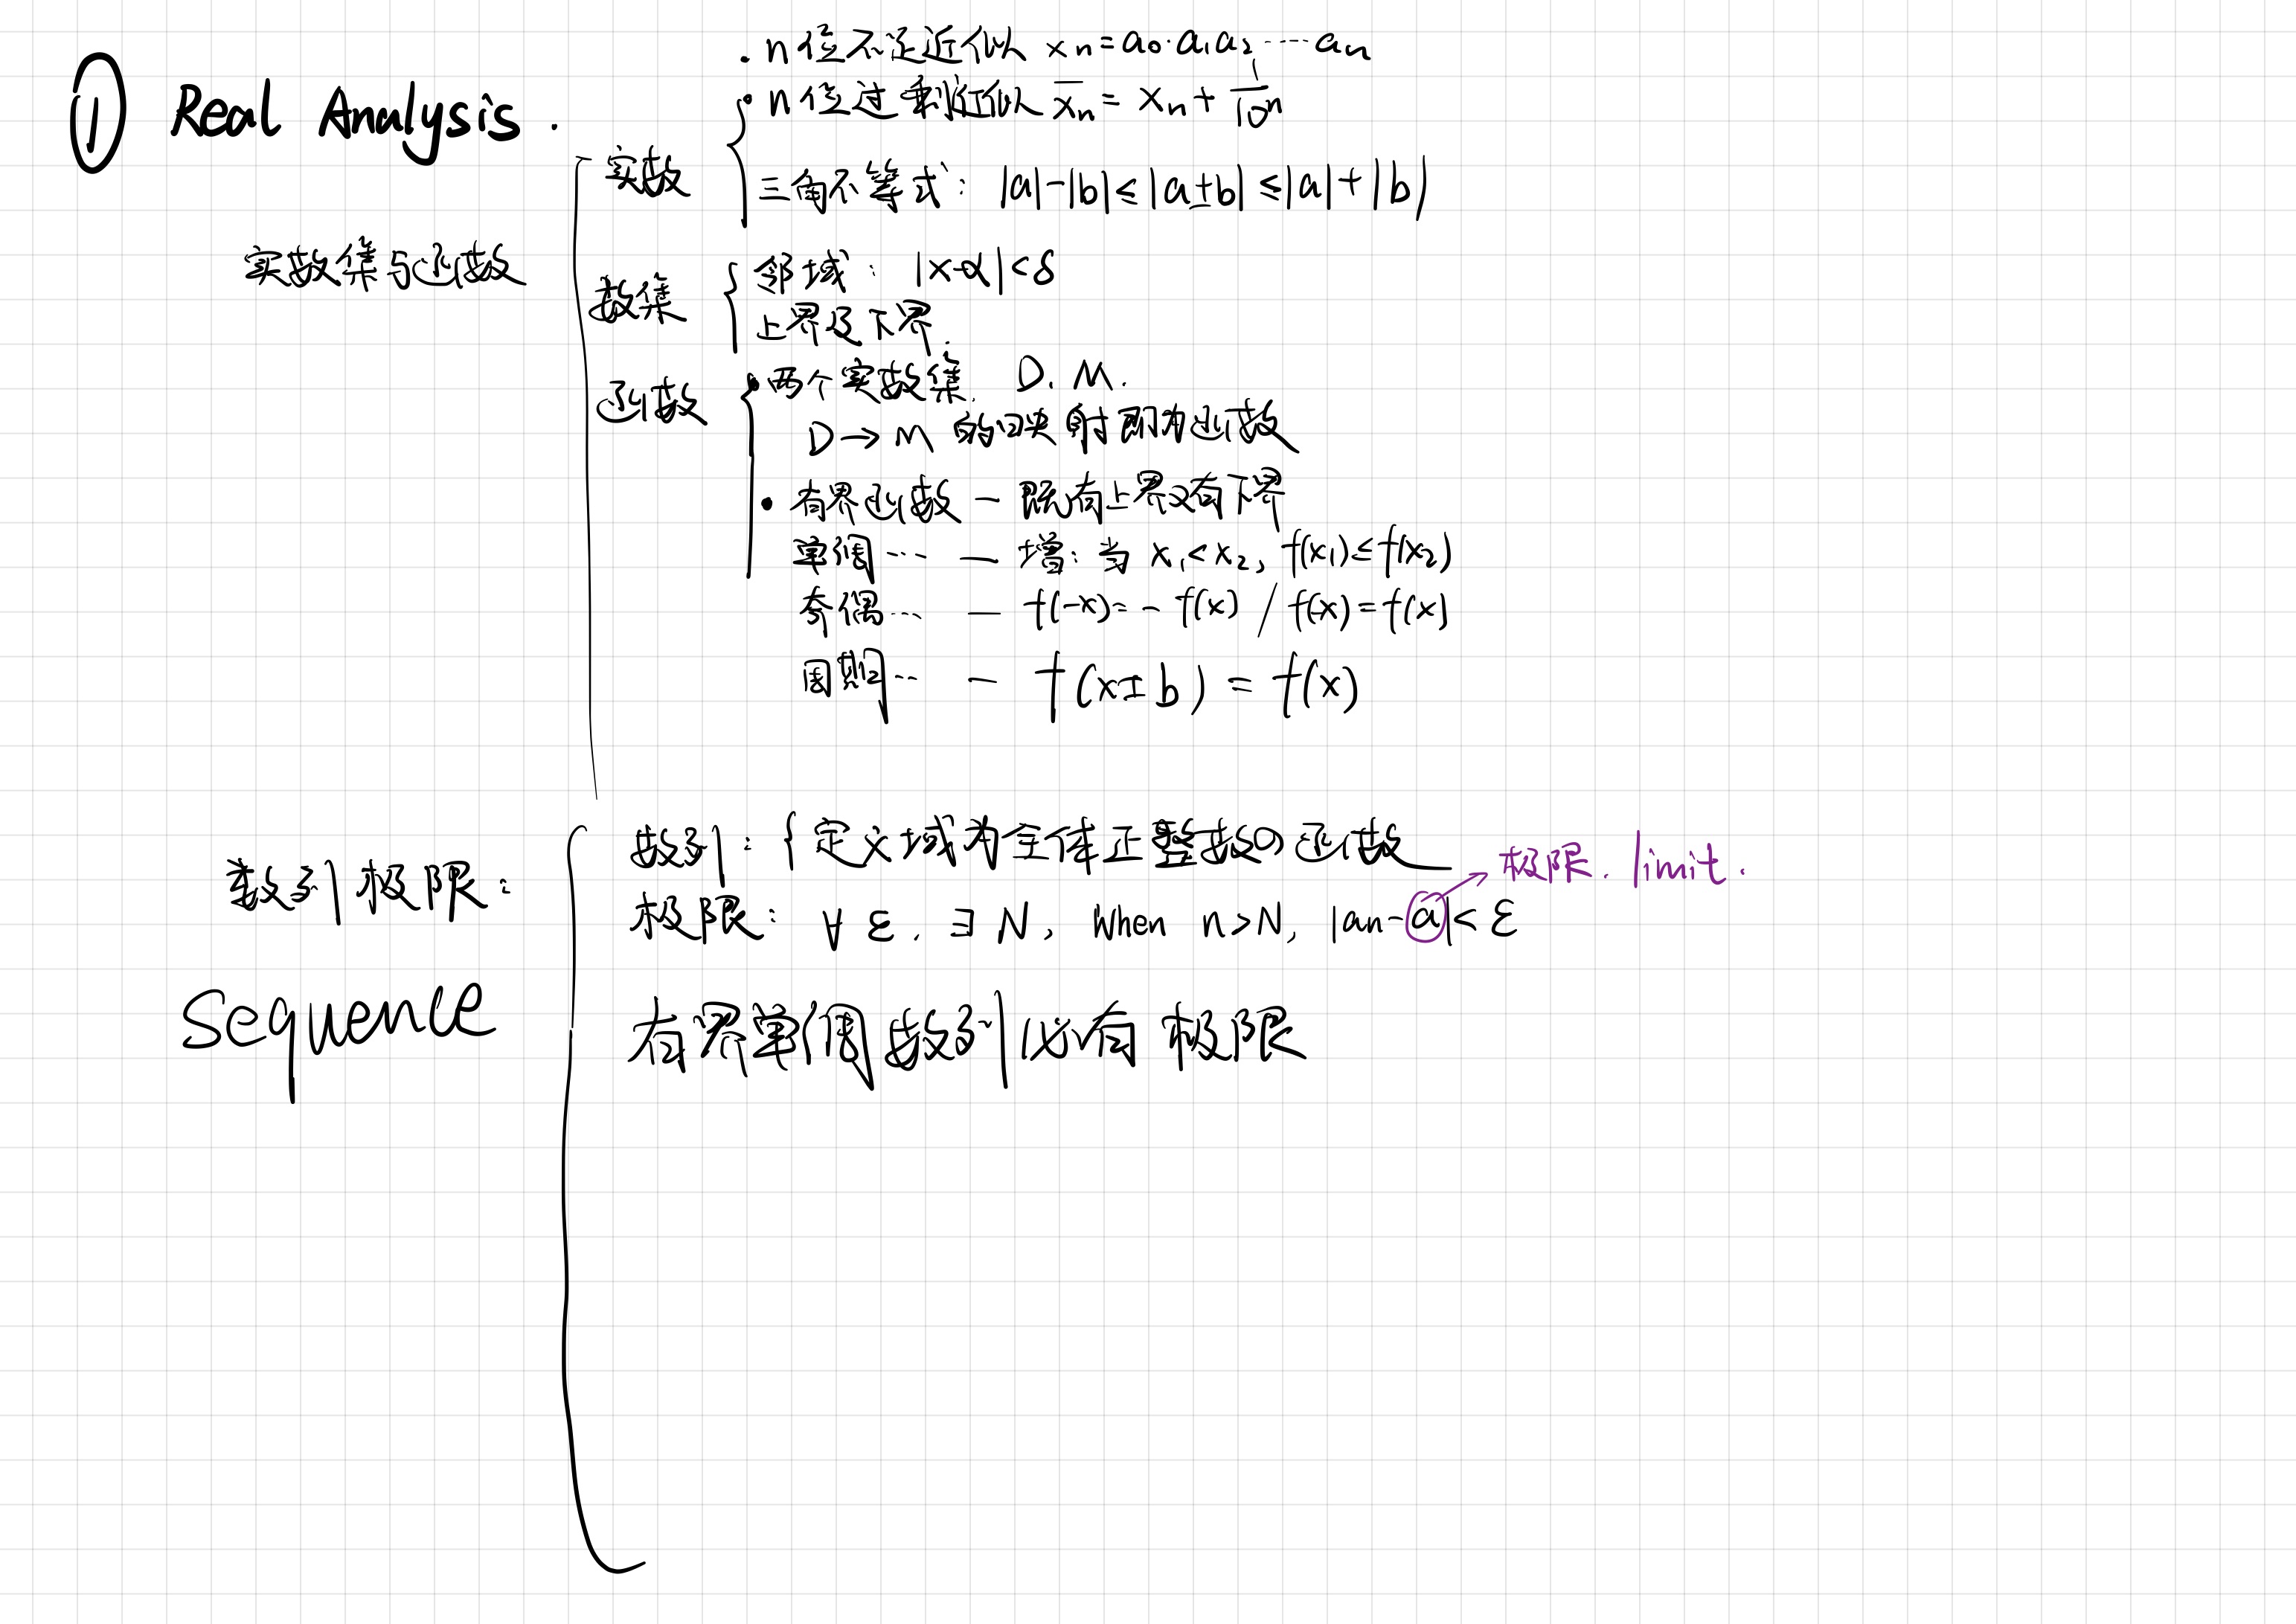 ① Real Analysis.
实数集与函数
实数
· n位不足近似 xn = a0.a1a2……an
· n位过剩近似 x̄n = xn + 1/10ⁿ
三角不等式: |a|-|b| ≤ |a±b| ≤ |a|+|b|
数集
邻域: |x-a|<δ
上界及下界.
函数
• 两个实数集 D. M.
D→M 的映射即为函数
• 有界函数 — 既有上界又有下界
单调… — 增: 当 x₁<x₂, f(x₁)≤f(x₂)
奇偶… — f(-x)=-f(x) / f(x)=f(x)
周期… — f(x±b) = f(x)
数列极限:
Sequence
数列: {定义域为全体正整数的函数
极限: ∀ε. ∃N, when n>N, |an-a|<ε
极限. limit.
有界单调数列必有极限